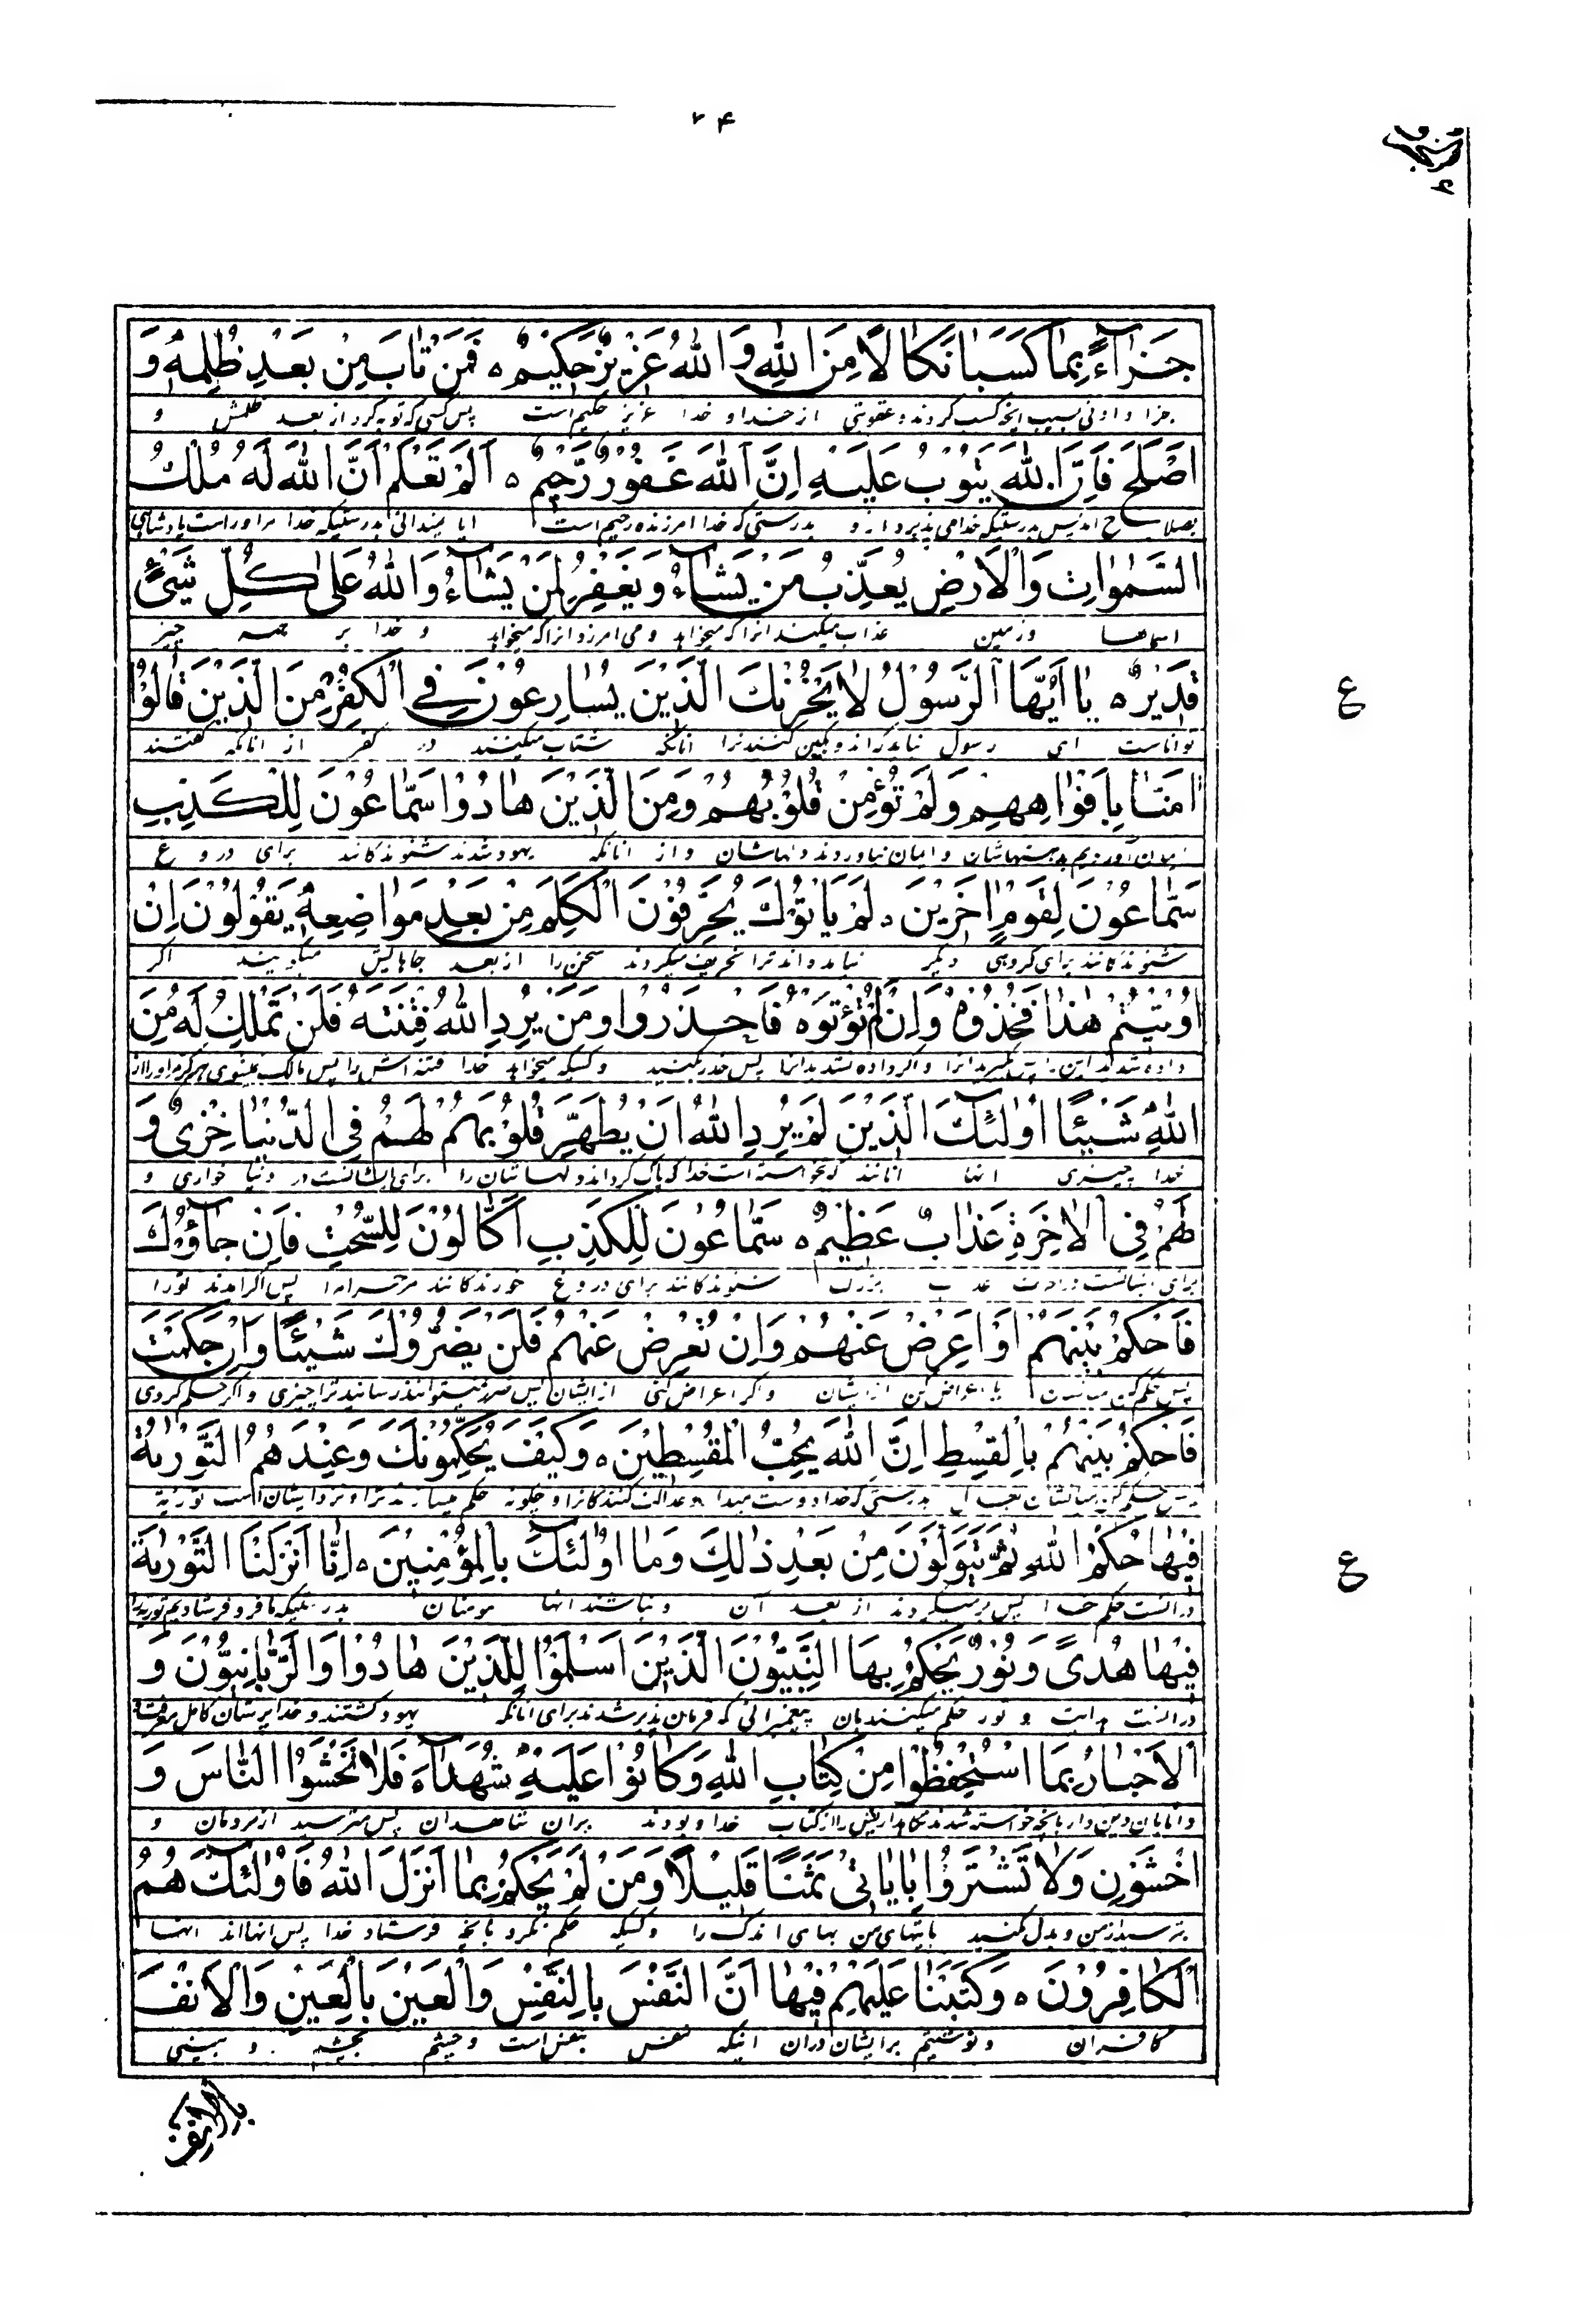 ۷۴
جَزٰآءً بِمٰا كَسَبٰا نَكٰالًا مِنَ اللّٰهِ وَ اللّٰهُ عَزِيْزٌ حَكِيْمٌ ه فَمَنْ تٰابَ مِنْ بَعْدِ ظُلْمِهٖ وَ
جزا دادنی بسبب آنچه کسب کردند و عقوبتی از خدا و خدا عزیز حکیم است پس کسی که توبه کرد از بعد ظلمش و
اَصْلَحَ فَاِنَّ اللّٰهَ يَتُوْبُ عَلَيْهِ اِنَّ اللّٰهَ غَفُوْرٌ رَّحِيْمٌ ه اَلَمْ تَعْلَمْ اَنَّ اللّٰهَ لَهُ مُلْكُ
بصلاح آمد پس بدرستیکه خدا می پذیرد از و بدرستی که خدا آمرزنده رحیم است آیا نمیدانی بدرستیکه خدا مر او راست پادشاهی
السَّمٰوٰاتِ وَالْاَرْضِ يُعَذِّبُ مَنْ يَشٰآءُ وَ يَغْفِرُ لِمَنْ يَشٰآءُ وَ اللّٰهُ عَلٰى كُلِّ شَيْئٍ
آسمانها و زمین عذاب میکند آنرا که میخواهد و می آمرزد آنرا که میخواهد و خدا بر همه چیز
قَدِيْرٌ ه يٰا اَيُّهَا الرَّسُوْلُ لٰا يَحْزُنْكَ الَّذِيْنَ يُسٰارِعُوْنَ فِي الْكُفْرِ مِنَ الَّذِيْنَ قٰالُوْا
تواناست ای رسول نباید که اندوهگین کنند ترا آنانکه شتاب میکنند در کفر از آنانکه گفتند
اٰمَنّٰا بِاَفْوٰاهِهِمْ وَلَمْ تُؤْمِنْ قُلُوْبُهُمْ وَمِنَ الَّذِيْنَ هٰادُوْا سَمّٰاعُوْنَ لِلْكَذِبِ
ایمان آوردیم بدهنهاشان و ایمان نیاوردند دلهاشان و از آنانکه یهود شدند شنوندگانند برای دروغ
سَمّٰاعُوْنَ لِقَوْمٍ اٰخَرِيْنَ لَمْ يَأْتُوْكَ يُحَرِّفُوْنَ الْكَلِمَ مِنْ بَعْدِ مَوٰاضِعِهٖ يَقُوْلُوْنَ اِنْ
شنوندگانند برای گروهی دیگر نیامده اند ترا تحریف میکردند سخن را از بعد جاهایش میگویند اگر
اُوْتِيْتُمْ هٰذٰا فَخُذُوْهُ وَاِنْ لَمْ تُؤْتَوْهُ فَاحْذَرُوْا وَمَنْ يُرِدِ اللّٰهُ فِتْنَتَهُ فَلَنْ تَمْلِكَ لَهُ مِنَ
داده شدید این را پس بگیرید آنرا و اگر داده نشدید آنرا پس حذر بکنید و کسیکه میخواهد خدا فتنه اش را پس مالک نمیشوی هرگز مر او را از
اللّٰهِ شَيْئًا اُوْلٰئِكَ الَّذِيْنَ لَمْ يُرِدِ اللّٰهُ اَنْ يُطَهِّرَ قُلُوْبَهُمْ لَهُمْ فِي الدُّنْيٰا خِزْيٌ وَ
خدا چیزی آنها آنانند که نخواسته است خدا که پاک گرداند دلهاشان را برای ایشانست در دنیا خواری و
لَهُمْ فِي الْاٰخِرَةِ عَذٰابٌ عَظِيْمٌ ه سَمّٰاعُوْنَ لِلْكَذِبِ اَكّٰالُوْنَ لِلسُّحْتِ فَاِنْ جٰآؤُكَ
برای ایشانست در آخرت عذاب بزرگ شنوندگانند برای دروغ خورندگانند مر حرام را پس اگر آمدند تو را
فَاحْكُمْ بَيْنَهُمْ اَوْ اَعْرِضْ عَنْهُمْ وَاِنْ تُعْرِضْ عَنْهُمْ فَلَنْ يَضُرُّوْكَ شَيْئًا وَاِنْ حَكَمْتَ
پس حکم کن میانشان یا اعراض کن از ایشان و اگر اعراض کنی از ایشان پس ضرر نمیتوانند رسانید ترا چیزی و اگر حکم کردی
فَاحْكُمْ بَيْنَهُمْ بِالْقِسْطِ اِنَّ اللّٰهَ يُحِبُّ الْمُقْسِطِيْنَ ه وَكَيْفَ يُحَكِّمُوْنَكَ وَعِنْدَهُمُ التَّوْرٰىةُ
پس حکم کن میانشان بعدل بدرستی که خدا دوست میدارد عدالت کنندگانرا و چگونه حکم میسازند ترا و نزد ایشان است توریة
فِيْهٰا حُكْمُ اللّٰهِ ثُمَّ يَتَوَلَّوْنَ مِنْ بَعْدِ ذٰلِكَ وَمٰا اُوْلٰئِكَ بِالْمُؤْمِنِيْنَ ه اِنّٰا اَنْزَلْنَا التَّوْرٰىةَ
در آنست حکم خدا پس بر میگردند از بعد آن و نباشند آنها مومنان بدرستیکه ما فرو فرستادیم توریة را
فِيْهٰا هُدًى وَ نُوْرٌ يَحْكُمُ بِهَا النَّبِيُّوْنَ الَّذِيْنَ اَسْلَمُوْا لِلَّذِيْنَ هٰادُوْا وَالرَّبّٰانِيُّوْنَ وَ
در آنست هدایت و نور حکم میکنند بآن پیغمبرانی که فرمان پذیر شدند برای آنانکه یهود گشتند و خدا پرستان کامل معرفت و
الْاَحْبٰارُ بِمَا اسْتُحْفِظُوْا مِنْ كِتٰابِ اللّٰهِ وَكٰانُوْا عَلَيْهِ شُهَدٰآءَ فَلٰا تَخْشَوُا النّٰاسَ وَ
دانایان دین دار بآنچه خواسته شدند نگاهداریش را از کتاب خدا و بودند بر آن شاهدان پس مترسید از مردمان و
اخْشَوْنِ وَلٰا تَشْتَرُوْا بِاٰيٰاتِيْ ثَمَنًا قَلِيْلًا وَمَنْ لَمْ يَحْكُمْ بِمٰا اَنْزَلَ اللّٰهُ فَاُوْلٰئِكَ هُمُ
بترسید از من و بدل مکنید بآیتهای من بهای اندک را و کسیکه حکم نکرد بآنچه فرستاد خدا پس آنها اند آنها
الْكٰافِرُوْنَ ه وَكَتَبْنٰا عَلَيْهِمْ فِيْهٰا اَنَّ النَّفْسَ بِالنَّفْسِ وَالْعَيْنَ بِالْعَيْنِ وَالْاَنْفَ
کافران و نوشتیم بر ایشان در آن اینکه نفس بنفس است و چشم بچشم و بینی
ع
ع
بِالْاَنْفِ